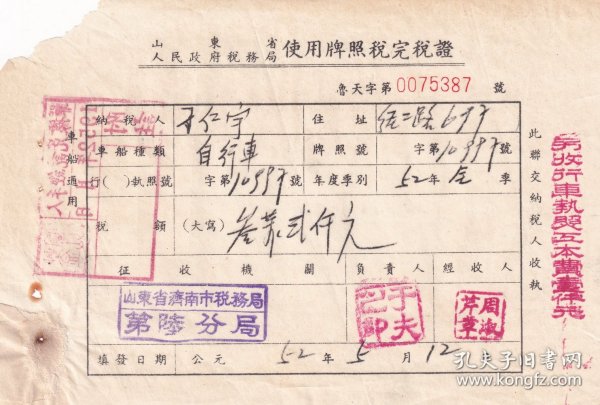 山東省
人民政府税務局
使用牌照税完税證
魯天字第0075387號
車船通用
納税人 于仁宇 住址 經二路697
車船種類 自行車 牌照號 字第10997號
行()執照號 字第10997號 年度季別 52年全季
税額 (大寫) 壹萬貳仟元
徵收機關 負責人 經收人
山東省濟南市税務局
第陸分局
填發日期 公元 52年5月12日
此聯交納税人收執
另收行車執照工本費壹仟元
孔夫子旧书网
www.kongfz.com